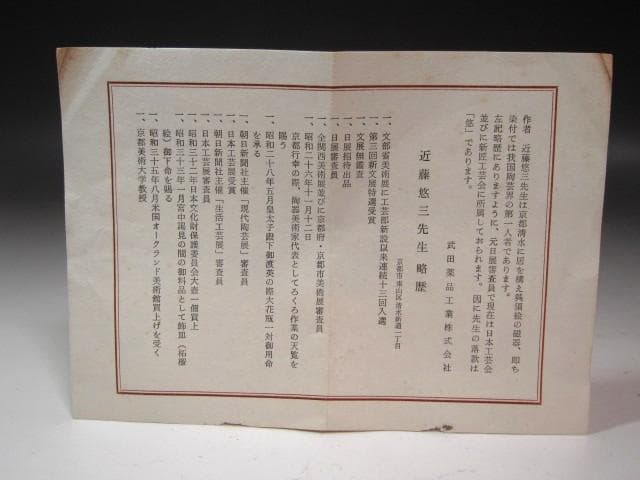 作者 近藤悠三先生は京都清水に居を構え呉須絵の磁器、即ち
染付では我国陶芸界の第一人者であります。
左記略歴にありますように、元日展審査員で現在は日本工芸会
並びに新匠工芸会に所属しておられます。因に先生の落款は
「悠」であります。
武田薬品工業株式会社
近藤悠三先生 略歴
京都市東山区清水新道一丁目
一、文部省美術展に工芸部新設以来連続十三回入選
一、第三回新文展特選受賞
一、文展無鑑査
一、日展招待出品
一、日展審査員
一、全関西美術展並びに京都府・京都市美術展審査員
一、昭和二十六年十一月十二日
京都行幸の際、陶器美術家代表としてろくろ作業の天覧を
賜う
一、昭和二十八年五月皇太子殿下御渡英の際大花瓶一対御用命
を承る
一、朝日新聞社主催「現代陶芸展」審査員
一、日本工芸展受賞
一、朝日新聞社主催「生活工芸展」審査員
一、日本工芸展審査員
一、昭和三十二年日本文化財保護委員会大壺一個買上
一、昭和三十三年一月宮中謁見の間の御料品として飾皿(柘榴
絵)御下命を賜る
一、昭和三十五年八月米国オークランド美術館買上げを受く
一、京都美術大学教授